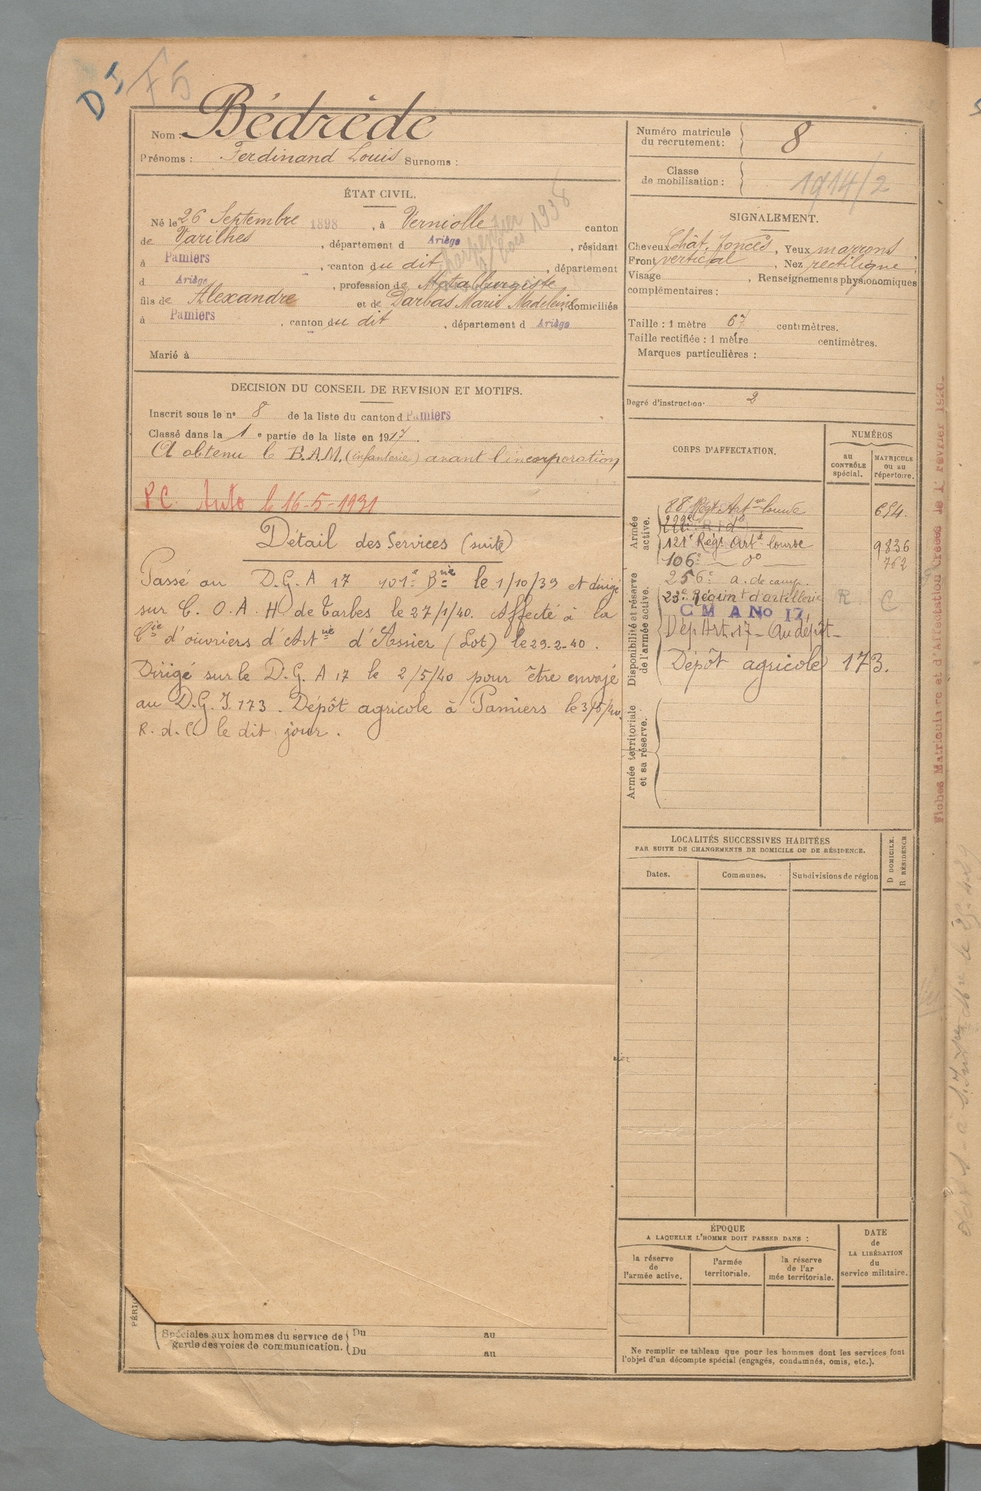 D I F5
Nom : Bédrède
Prénoms : Ferdinand Louis Surnoms :
ÉTAT CIVIL.
Né le 26 Septembre 1898, à Verniolle canton
de Varilhes, département d Ariège, résidant
à Pamiers, canton du dit, département
d Ariège, profession de Métallurgiste
charpentier s/ bois 1938
fils de Alexandre et de Darbas Marie Madeleine domiciliés
à Pamiers, canton du dit, département d Ariège
Marié à
DECISION DU CONSEIL DE REVISION ET MOTIFS.
Inscrit sous le nº 8 de la liste du canton d Pamiers
Classé dans la 1e partie de la liste en 1917.
A obtenu le B.A.M. (infanterie) avant l'incorporation
P.C. Auto le 16-5-1931
Détail des Services (suite)
Passé au D.G.A 17 101e Bie le 1/10/39 et dirigé
sur C.O.A.H de Tarbes le 27/1/40. Affecté à la
Cie d'ouvriers d'Artie d'Assier (Lot) le 29.2.40.
Dirigé sur le D.G.A 17 le 2/5/40 pour être envoyé
au D.G.I. 173. Dépôt agricole à Pamiers le 3/5/40.
R.d.C. le dit jour.
PÉRIO
Spéciales aux hommes du service de garde des voies de communication.
Du au
Du au
Numéro matricule du recrutement : 8
Classe de mobilisation : 1914/2
SIGNALEMENT.
Cheveux Chât. foncés, Yeux marrons
Front vertical, Nez rectiligne
Visage, Renseignements physionomiques
complémentaires :
Taille : 1 mètre 67 centimètres.
Taille rectifiée : 1 mètre centimètres.
Marques particulières :
Degré d'instruction : 2
CORPS D'AFFECTATION.
NUMÉROS
AU CONTRÔLE spécial.
MATRICULE ou au répertoire.
Armée active.
88e Régt Artie lourde 694.
121e Régt Artie lourde 9836
106e do 762
Disponibilité et réserve de l'armée active.
256e a. de camp.
23e Régiment d'artillerie R C
C M A No 17
Dép Art. 17 - Au dépôt -
Dépôt agricole 173.
Armée territoriale et sa réserve.
LOCALITÉS SUCCESSIVES HABITÉES
PAR SUITE DE CHANGEMENTS DE DOMICILE OU DE RÉSIDENCE.
Dates.
Communes.
Subdivisions de région
D DOMICILE.
R RÉSIDENCE
ÉPOQUE
A LAQUELLE L'HOMME DOIT PASSER DANS :
la réserve de l'armée active.
l'armée territoriale.
la réserve de l'armée territoriale.
DATE de LA LIBÉRATION du service militaire.
Ne remplir ce tableau que pour les hommes dont les services font
l'objet d'un décompte spécial (engagés, condamnés, omis, etc.).
Fiches Matricule et d'Affectation créées le 1er février 1920.